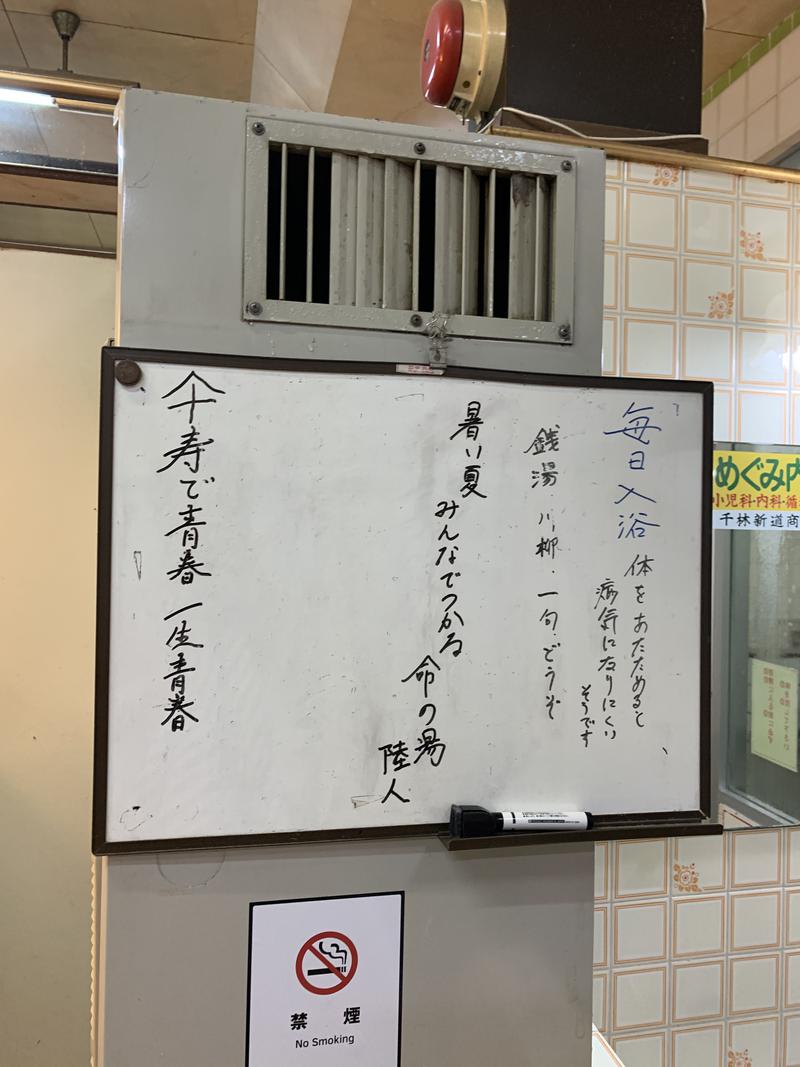 毎日入浴
体をあたためると
病気になりにくい
そうです
銭湯・川柳・一句・どうぞ
暑い夏
みんなでつかる
命の湯
陸人
傘寿で青春一生青春
めぐみ内
小児科・内科・循
千林新道商
禁煙
No Smoking